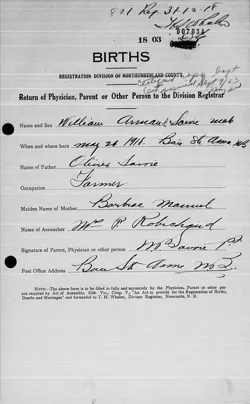 Reg 31-12-18
18 03
007034
BIRTHS
REGISTRATION DIVISION OF NORTHUMBERLAND COUNTY,
Return of Physician, Parent or Other Person to the Division Registrar
Name and Sex William Savoie male
When and where born May 20 1918. Baie Ste Anne NB
Name of Father Oliver Savoie
Occupation Farmer
Maiden Name of Mother Manuel
Name of Accoucher Mrs P Robichaud
Signature of Parent, Physician or other person Savoie
Post Office Address Baie Ste Anne N.B.
NOTE.—The above form is to be filled in fully and accurately by the Physician, Parent or other person required by Act of Assembly, 10th Vic., Chap. V., "An Act to provide for the Registration of Births, Deaths and Marriages" and forwarded to T. H. Whalen, Division Registrar, Newcastle, N. B.